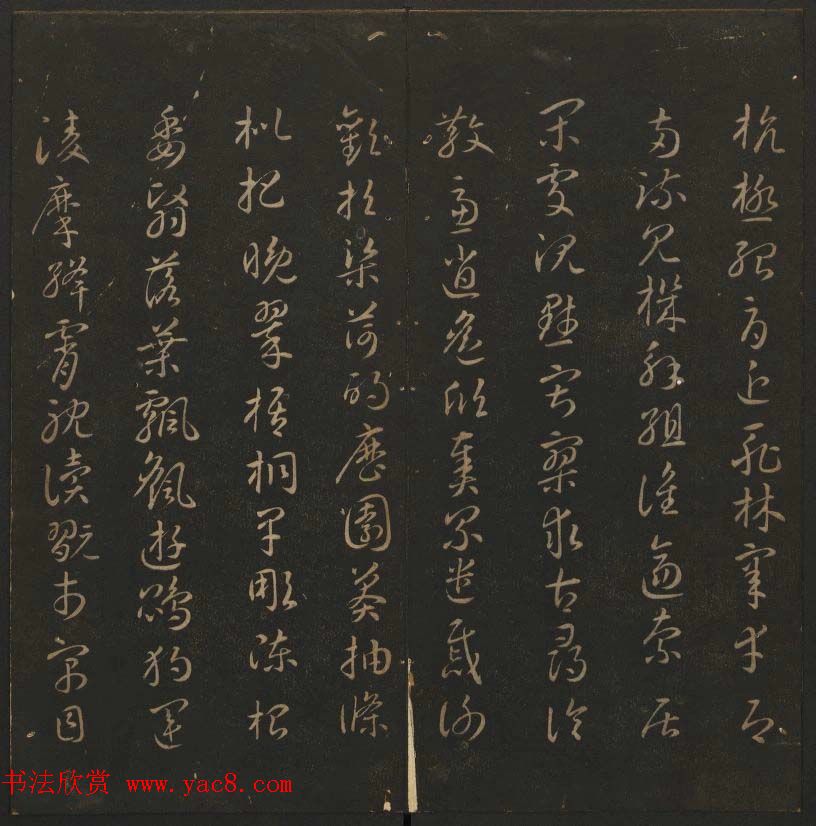 抗極殆辱近恥林皋幸即
兩疏見機解組誰逼索居
閑處沉默寂寥求古尋論
散慮逍遙欣奏累遣慼謝
歡招渠荷的歷園莽抽條
枇杷晚翠梧桐早彫陳根
委翳落葉飄颻遊鵾獨運
凌摩絳霄耽讀翫市寓目
书法欣赏 www.yac8.com